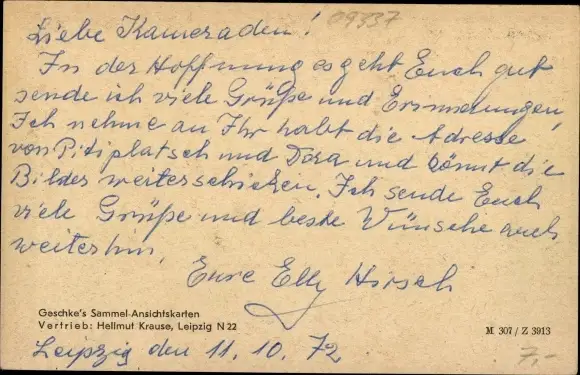 Liebe Kameraden! 09337
In der Hoffnung es geht Euch gut
sende ich viele Grüße und Erinnerungen,
Ich nehme an Ihr habt die Adresse
von Pitiplatsch und Dora und könnt die
Bilder weiterschicken. Ich sende Euch
viele Grüße und beste Wünsche auch
weiterhin,
Eure Elly Hirsch
Geschke's Sammel-Ansichtskarten
Vertrieb: Hellmut Krause, Leipzig N 22
M 307 / Z 3913
Leipzig den 11.10.72
7,-